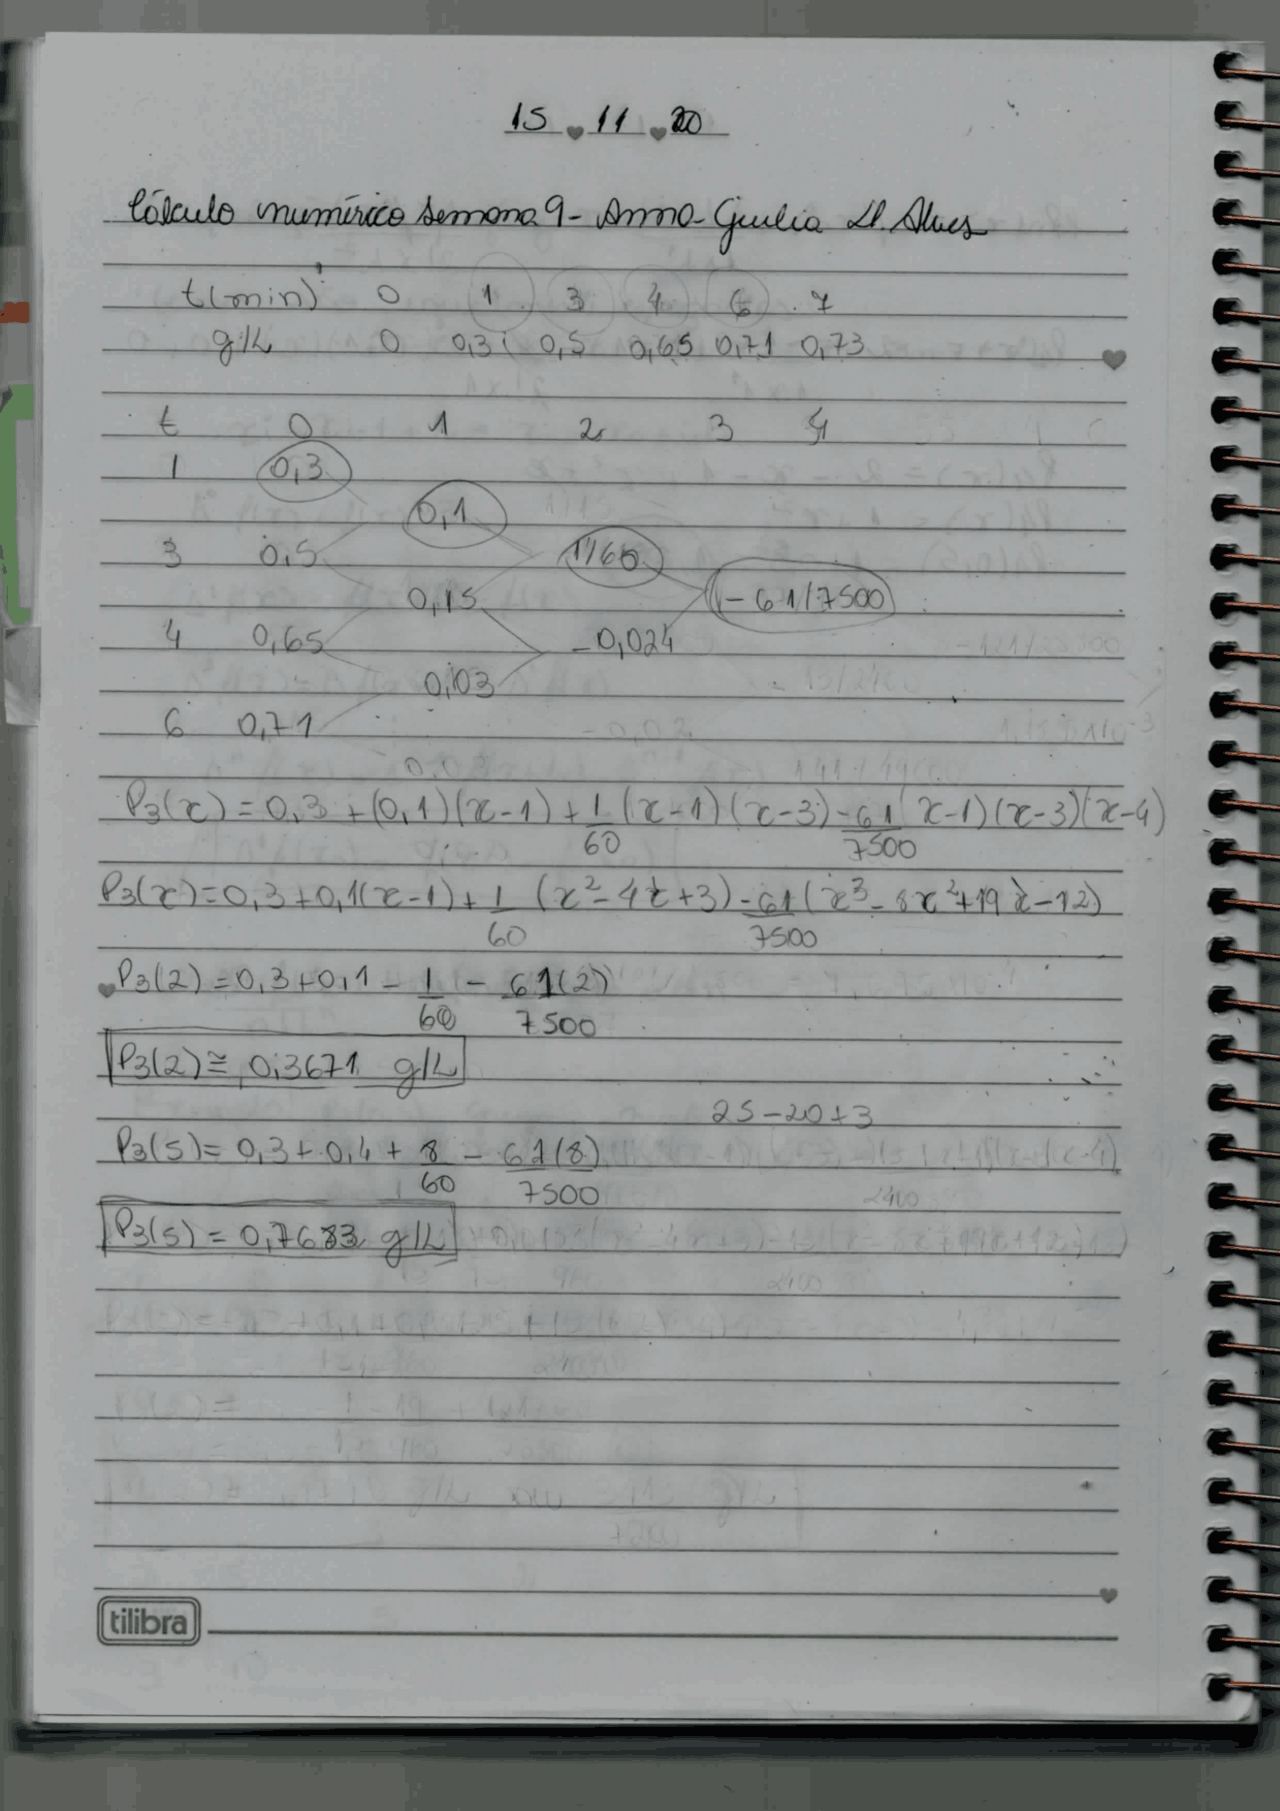 15.11.20
Cálculo numérico semana 9 - Anna Giulia M. Alves
t(min) 0 1 3 4 6 7
g/L 0 0,3 0,5 0,65 0,71 0,73
t 0 1 2 3 4
1 0,3
0,1
3 0,5 1/60
0,15 -61/7500
4 0,65 -0,024
0,03
6 0,71
P3(x) = 0,3 + (0,1)(x-1) + 1/60 (x-1)(x-3) - 61/7500 (x-1)(x-3)(x-4)
P3(x) = 0,3 + 0,1(x-1) + 1/60 (x² - 4x + 3) - 61/7500 (x³ - 8x² + 19x - 12)
P3(2) = 0,3 + 0,1 - 1/60 - 61(2)/7500
P3(2) ≅ 0,3671 g/L
25 - 20 + 3
P3(5) = 0,3 + 0,4 + 8/60 - 61(8)/7500
P3(5) = 0,7683 g/L
tilibra